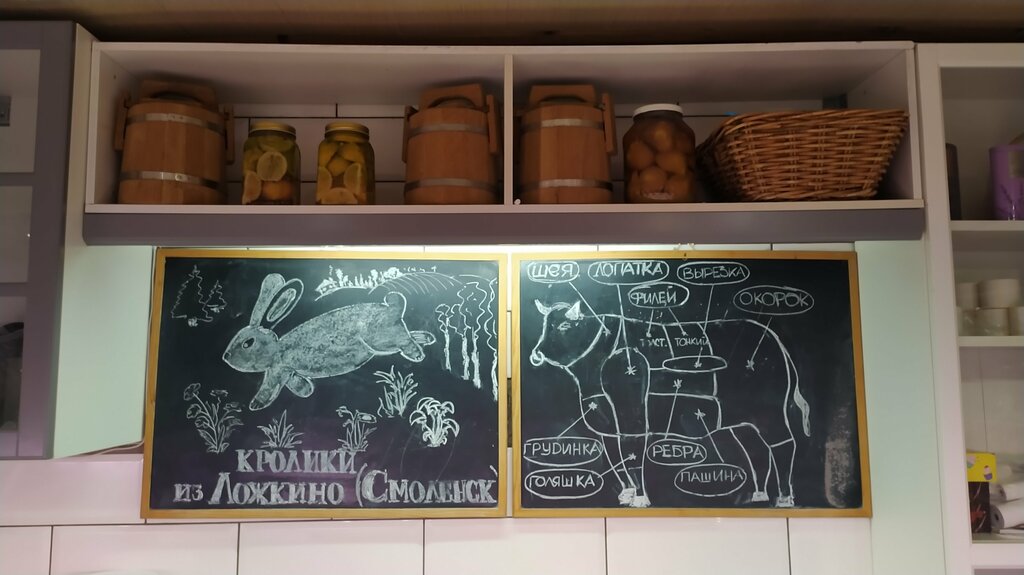 КРОЛИКИ
из ЛОЖКИНО (СМОЛЕНСК
ШЕЯ
ЛОПАТКА
ВЫРЕЗКА
ФИЛЕЙ
ОКОРОК
ТОНКИЙ
ГРУДИНКА
РЕБРА
ГОЛЯШКА
ПАШИНА